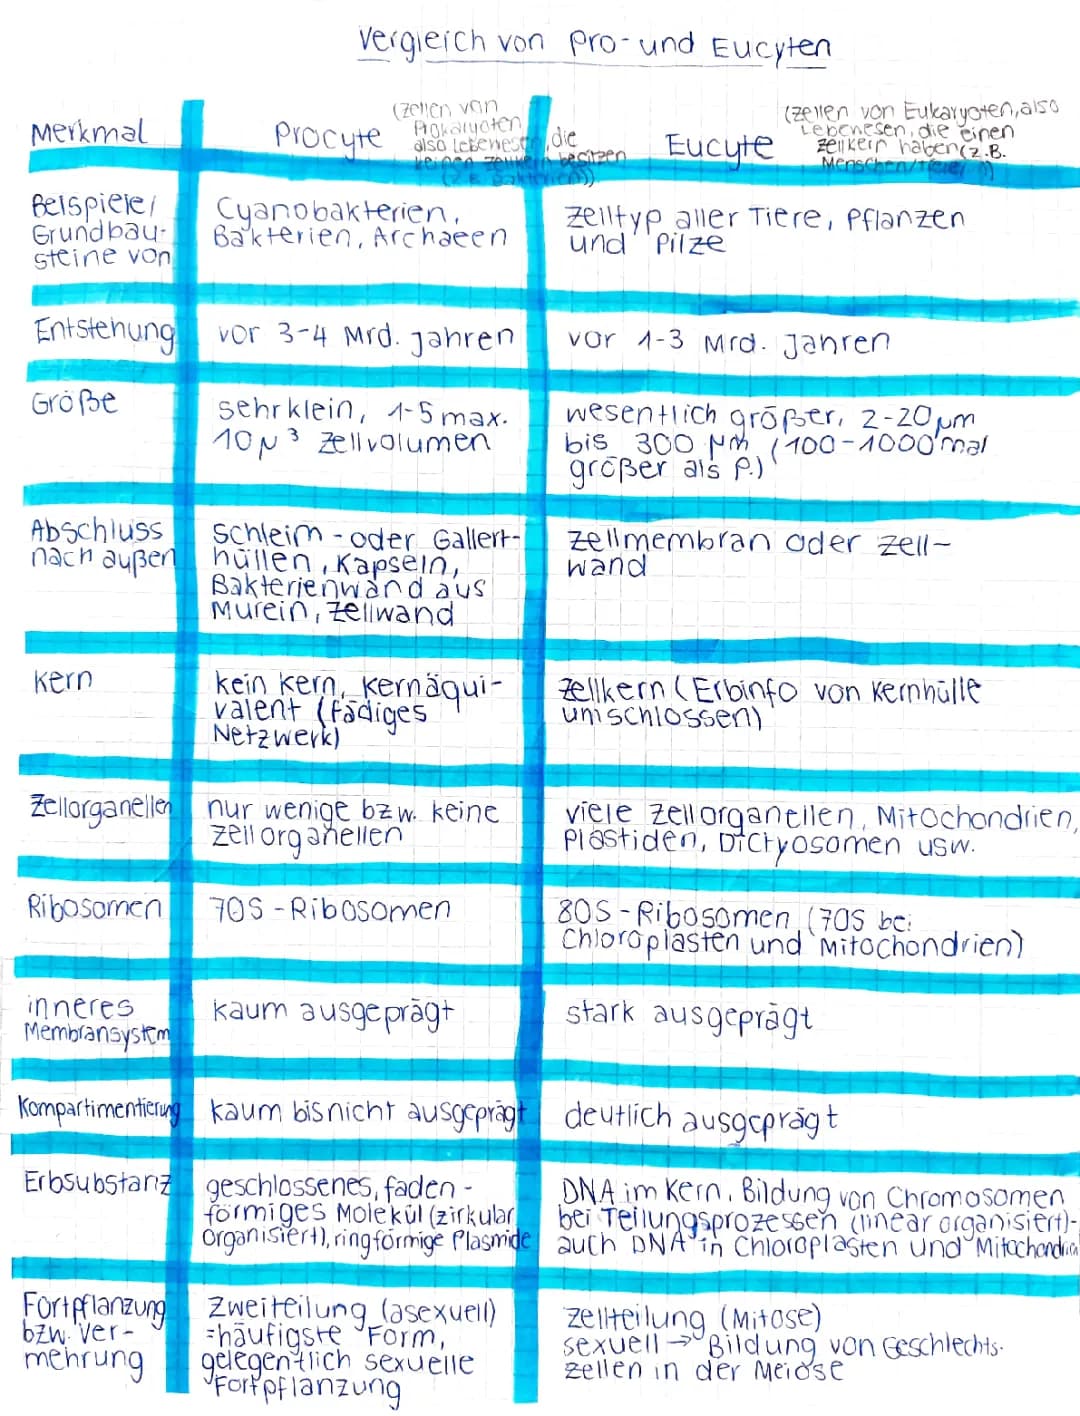 Vergleich von Pro- und Eucyten
Merkmal
Procyte
(Zellen von
Prokaryoten
also Lebewesen, die
keinen Zellkern besitzen
(z.B. Bakterien))
Eucyte
(Zellen von Eukaryoten, also
Lebenesen, die einen
Zellkern haben (z.B.
Menschen/Tiere/
Beispiele/
Grundbau-
steine von
Cyanobakterien,
Bakterien, Archaeen
Zelltyp aller Tiere, Pflanzen
und Pilze
Entstehung
vor 3-4 Mrd. Jahren
vor 1-3 Mrd. Jahren
Größe
sehr klein, 1-5 max.
10 µ³ Zellvolumen
wesentlich größer, 2-20 µm
bis 300 µm (100-1000 mal
größer als P.)
Abschluss
nach außen
Schleim- oder Gallert-
hüllen, Kapseln,
Bakterienwand aus
Murein, Zellwand
Zellmembran oder Zell-
wand
Kern
kein Kern, Kernäqui-
valent (fädiges
Netzwerk)
Zellkern (Erbinfo von Kernhülle
umschlossen)
Zellorganellen
nur wenige bzw. keine
Zellorganellen
viele Zellorganellen, Mitochondrien,
Plastiden, Dictyosomen usw.
Ribosomen
70S-Ribosomen
80S-Ribosomen (70S bei
Chloroplasten und Mitochondrien)
inneres
Membransystem
kaum ausgeprägt
stark ausgeprägt
Kompartimentierung
kaum bis nicht ausgeprägt
deutlich ausgeprägt
Erbsubstanz
geschlossenes, faden-
förmiges Molekül (zirkulär
organisiert), ringförmige Plasmide
DNA im Kern, Bildung von Chromosomen
bei Teilungsprozessen (linear organisiert)-
auch DNA in Chloroplasten und Mitochondrien
Fortpflanzung
bzw. Ver-
mehrung
Zweiteilung (asexuell)
=häufigste Form,
gelegentlich sexuelle
Fortpflanzung
Zellteilung (Mitose)
sexuell → Bildung von Geschlechts-
zellen in der Meiose